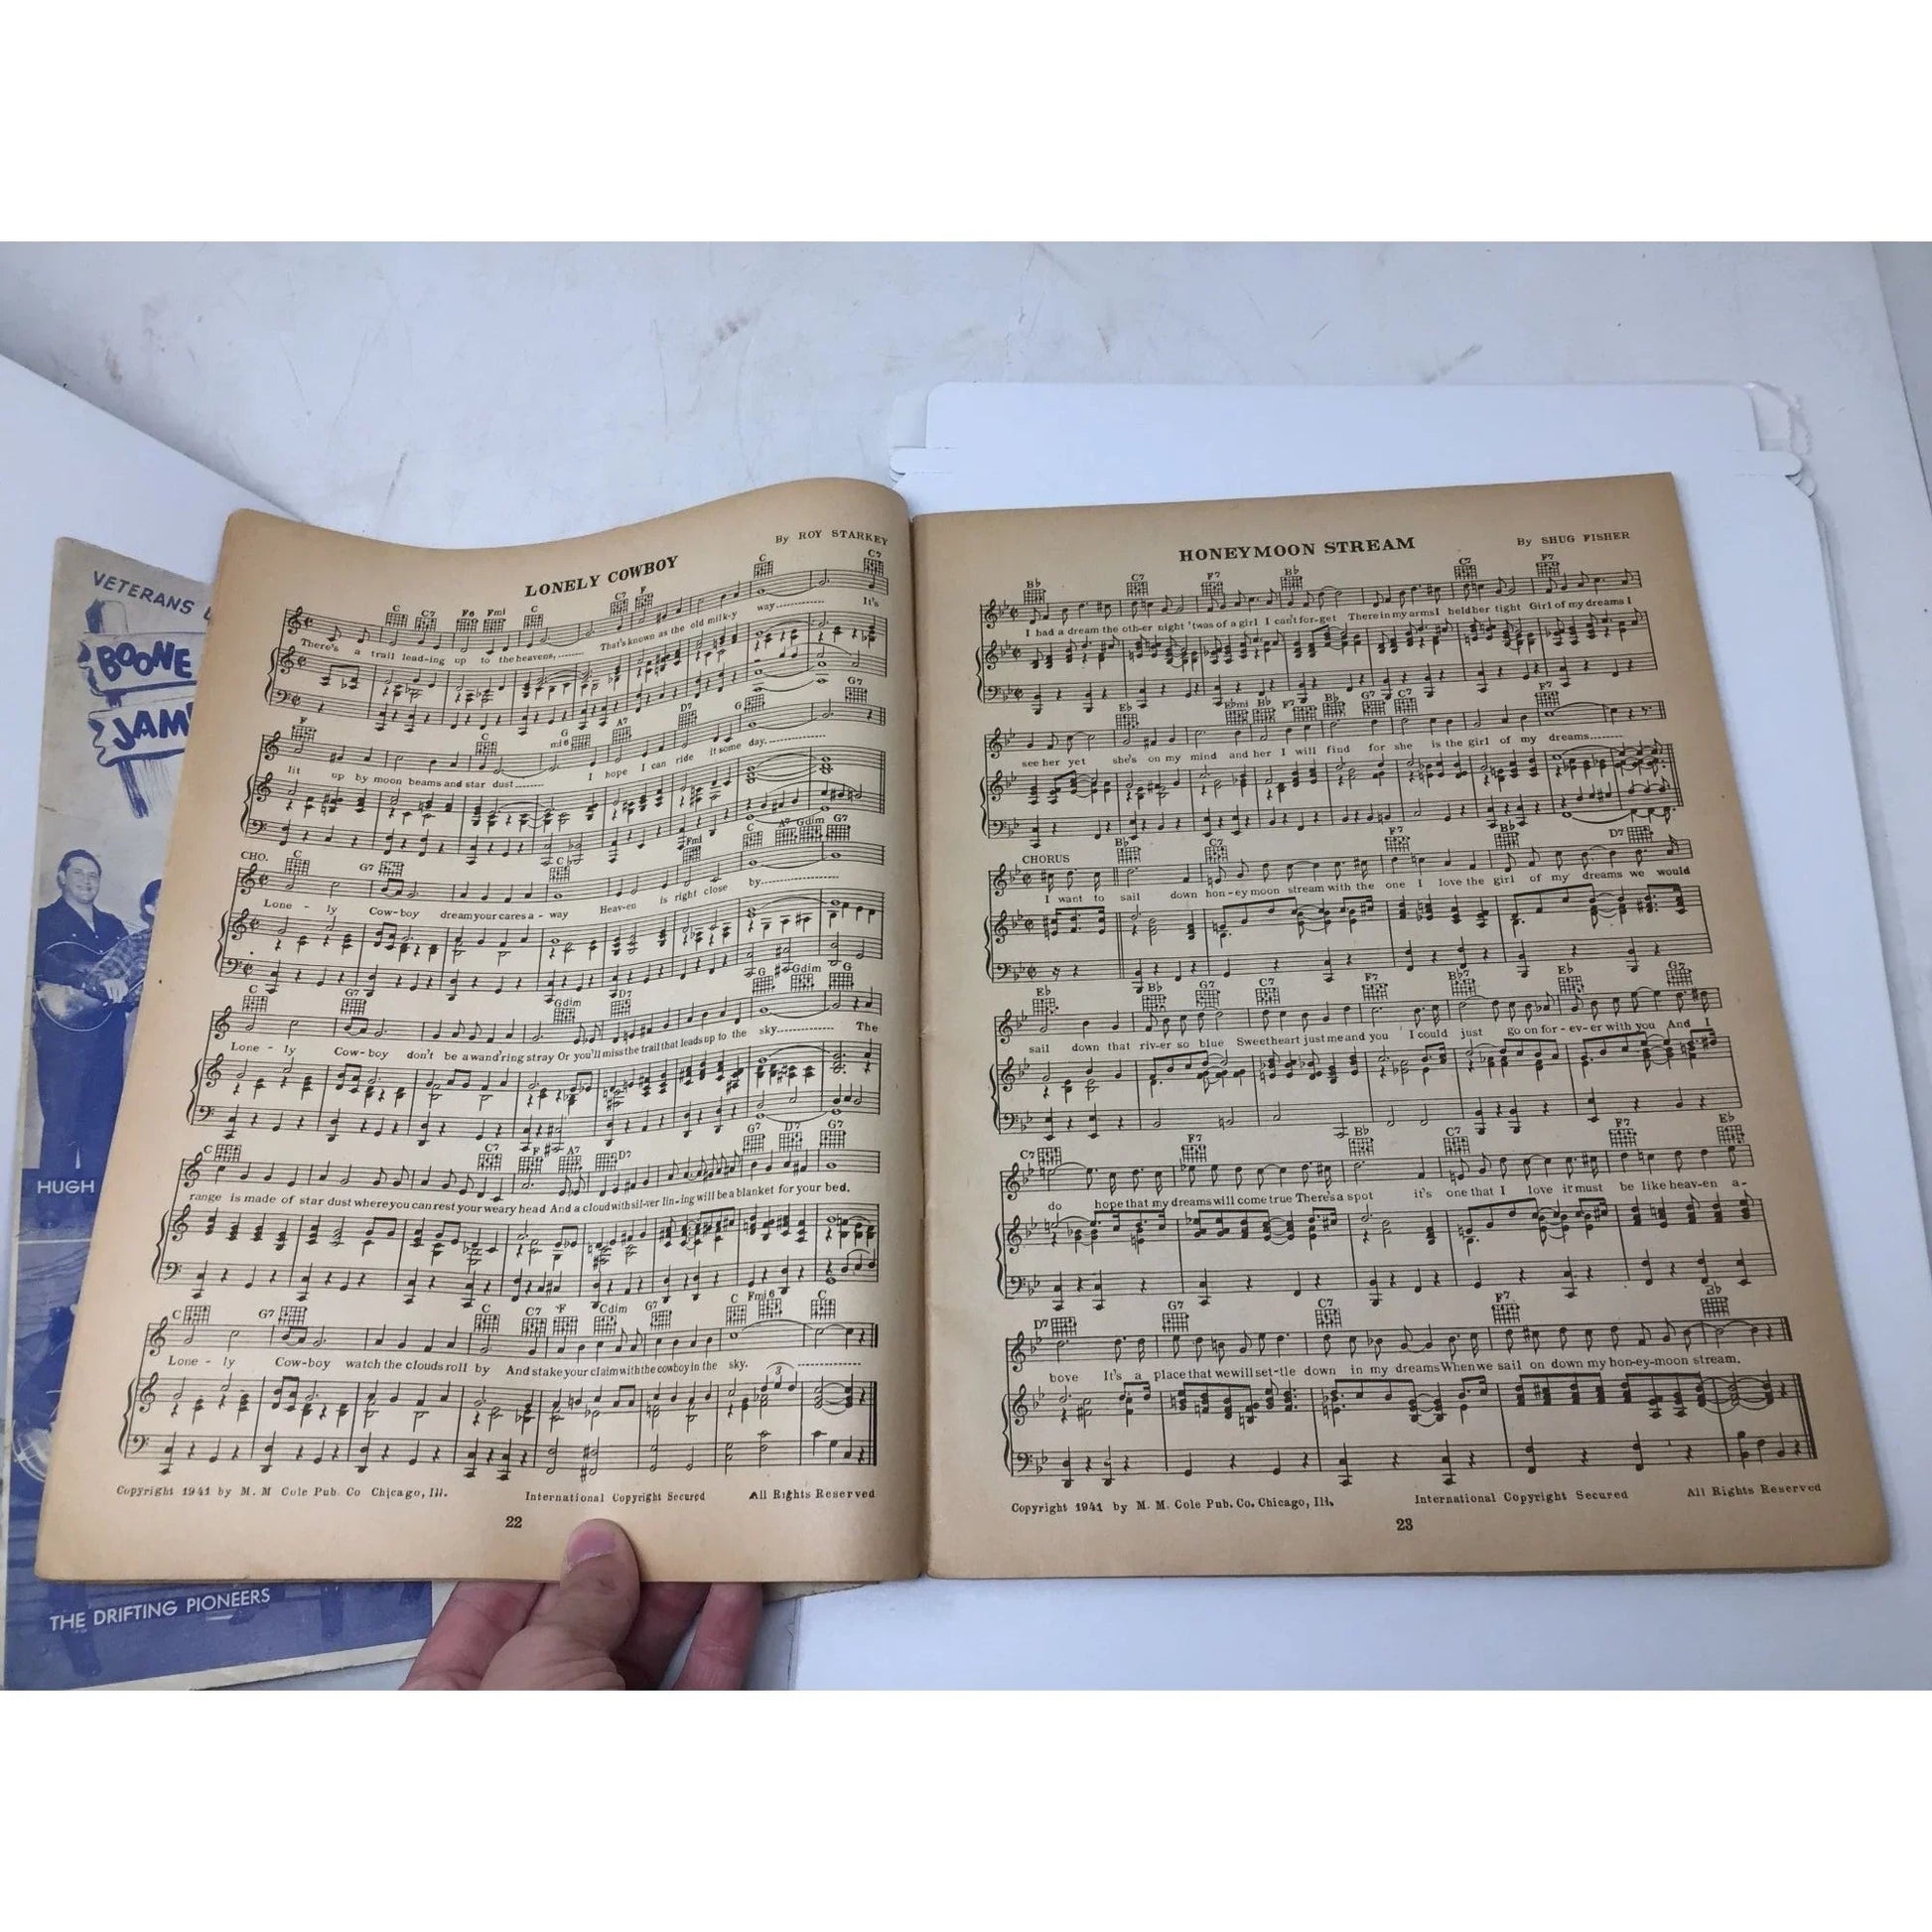 VETERANS
BOONE
JAM
HUGH
THE DRIFTING PIONEERS
LONELY COWBOY
By ROY STARKEY
C C7 F6 Fmi C C7 F C C7
There's a trail lead-ing up to the heavens,....... That's known as the old milk-y way............ It's
F C G mi6 A7 D7 G G7
lit up by moon beams and star dust....... I hope I can ride it some day..............
CHO.
C G7 C Fmi C A7 Gdim G7
Lone - ly Cow-boy dream your cares a - way Heav-en is right close by..................
C G7 Gdim D7 G Gdim G
Lone - ly Cow-boy don't be a wand'ring stray Or you'll miss the trail that leads up to the sky............. The
C C7 F A7 D7 G7 D7 G7
range is made of star dust where you can rest your weary head And a cloud with sil-ver lin-ing will be a blanket for your bed.
C G7 C C7 F Cdim G7 C Fmi6 C
Lone - ly Cow-boy watch the clouds roll by And stake your claim with the cowboy in the sky.
3
Copyright 1941 by M. M Cole Pub. Co Chicago, Ill. International Copyright Secured All Rights Reserved
22
HONEYMOON STREAM
By SHUG FISHER
Bb C7 F7 Bb C7 F7
I had a dream the oth-er night 'twas of a girl I can't for-get There in my arms I held her tight Girl of my dreams I
Eb Ebmi Bb F7 Bb G7 C7 F7
see her yet she's on my mind and her I will find for she is the girl of my dreams.......
CHORUS
Bb C7 F7 Bb D7
I want to sail down hon-ey moon stream with the one I love the girl of my dreams we would
Eb Bb G7 C7 F7 Bb7 Eb G7
sail down that riv-er so blue Sweetheart just me and you I could just go on for-ev-er with you And I
C7 F7 Bb C7 F7 Eb
do hope that my dreams will come true There's a spot it's one that I love it must be like heav-en a-
D7 G7 C7 F7 Bb
bove It's a place that we will set-tle down in my dreams When we sail on down my hon-ey-moon stream.
Copyright 1941 by M. M. Cole Pub. Co. Chicago, Ill. International Copyright Secured All Rights Reserved
23